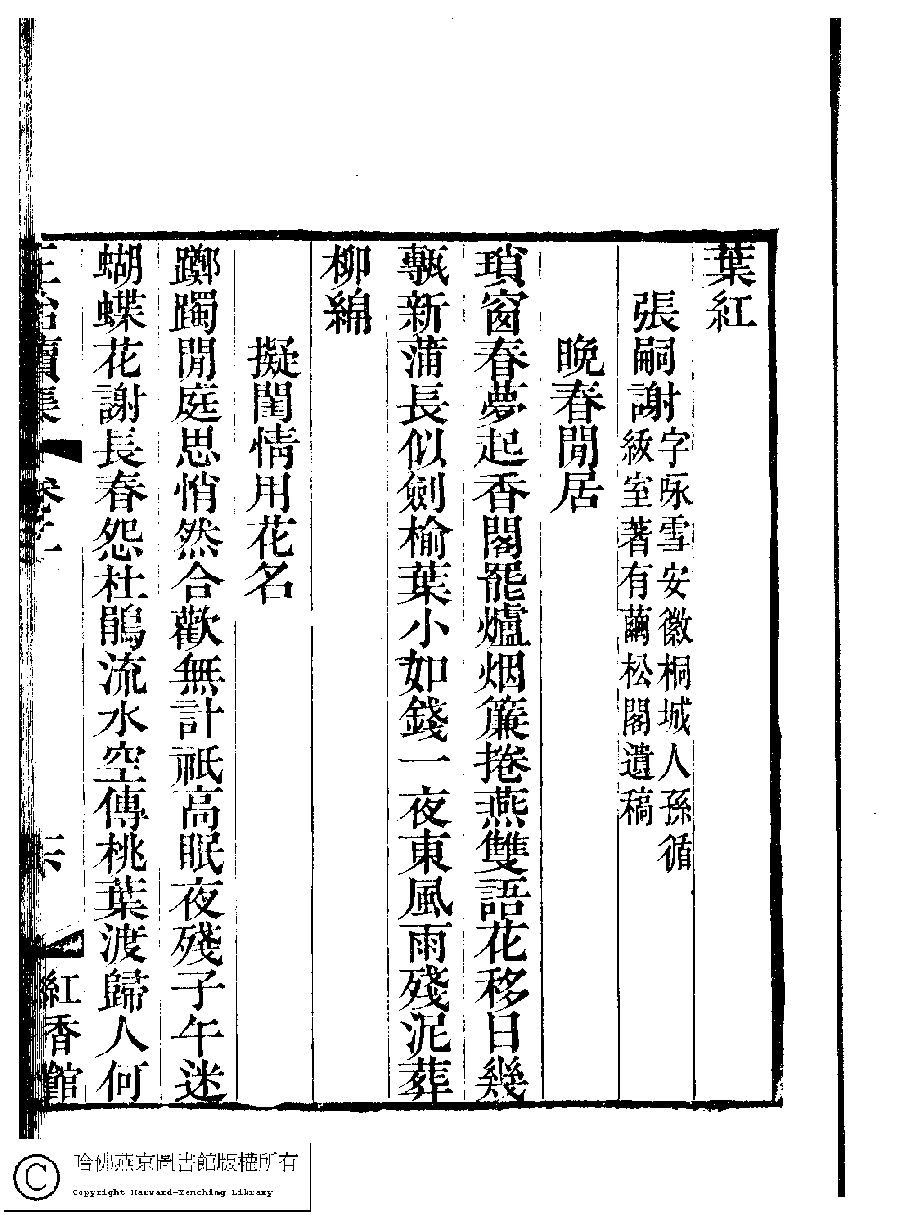 葉紅
張嗣謝字咏雪安徽桐城人孫循
緻室著有繭松閣遺稿
晚春閒居
瑣窗春夢起香閣罷爐烟簾捲燕雙語花移日幾
甎新蒲長似劍榆葉小如錢一夜東風雨殘泥葬
柳綿
擬閨情用花名
躑躅閒庭思悄然合歡無計祇高眠夜殘子午迷
蝴蝶花謝長春怨杜鵑流水空傳桃葉渡歸人何
續集
卷
紅香館
哈佛燕京圖書館版權所有
Copyright Harvard-Yenching Library